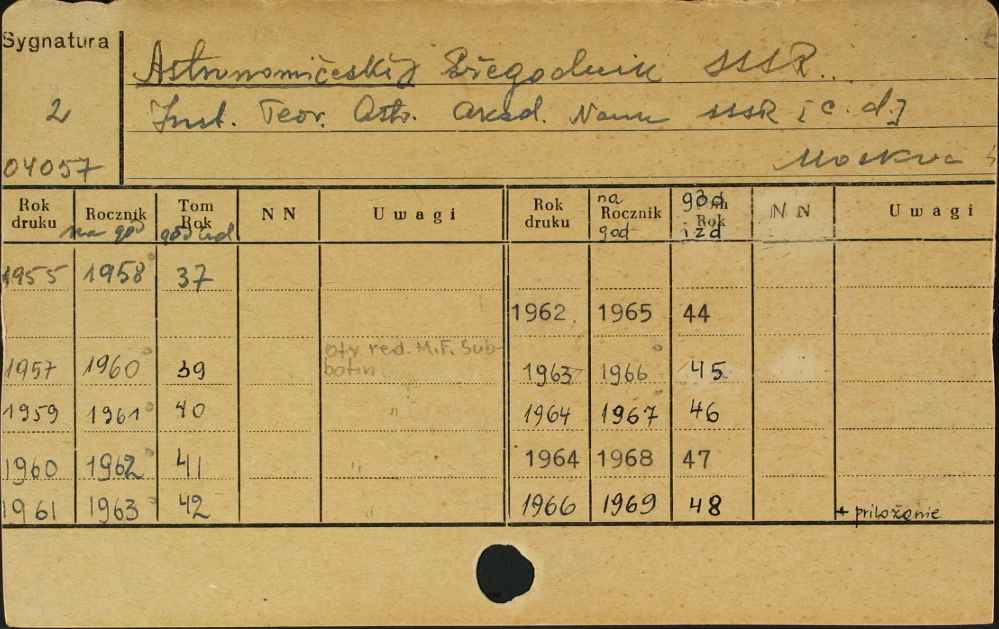 Sygnatura
2
04057
Astronomičeskij Ežegodnik SSSR..
Inst. Teor. Astr. Akad. Nauk SSSR [c. d.]
Moskva
Rok druku Rocznik na god Tom Rok god izd NN Uwagi
1955 1958 37
1957 1960 39 Otv red. M.F. Sub-
botin
1959 1961 40 "
1960 1962 41 "
1961 1963 42
Rok druku na Rocznik god god Tom Rok izd NN Uwagi
1962 1965 44
1963 1966 45
1964 1967 46
1964 1968 47
1966 1969 48 + priložęnie